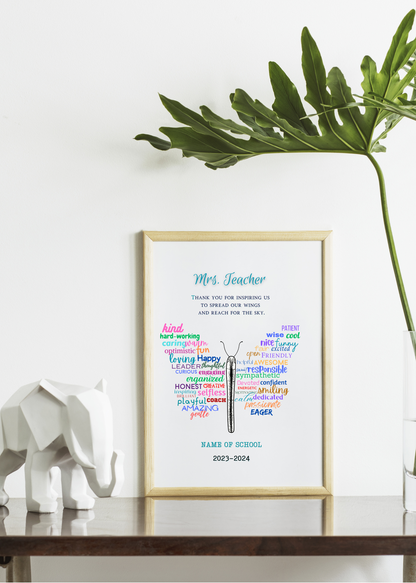 Mrs. Teacher
THANK YOU FOR INSPIRING US
TO SPREAD OUR WINGS
AND REACH FOR THE SKY.
kind
hard-working
caring
optimistic fun
loving Happy
LEADER thoughtful
CURIOUS
organized
HONEST CREATIVE
selfless
playful COACH
AMAZING
gentle
PATIENT
wise cool
nice funny
open excited
FRIENDLY
AWESOME
responsible
sympathetic
Devoted confident
ENERGETIC smiling
calm dedicated
passionate
EAGER
NAME OF SCHOOL
2023-2024